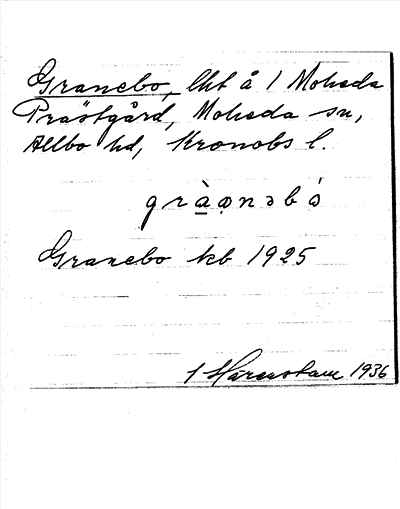 Granebo, lht å 1 Moheda
Prästgård, Moheda sn,
Allbo hd, Kronobs l.
gràǫnəbó
Granebo kb 1925
1936